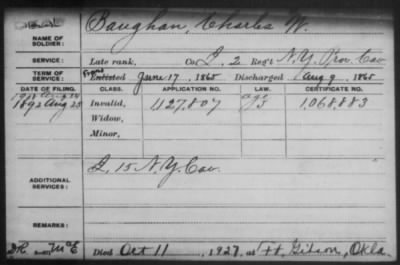 Baughan, Charles W.
NAME OF SOLDIER:
SERVICE: Late rank, Co. L. 2 Reg't N.Y. Prov. Cav
TERM OF SERVICE: From Enlisted June 17, 1865 Discharged Aug 9, 1865
DATE OF FILING. CLASS. APPLICATION NO. LAW. CERTIFICATE NO.
1892 Aug 25 Invalid, 1127.807 1.068.883
Widow,
Minor,
ADDITIONAL SERVICES: L. 15 N.Y. Cav.
REMARKS:
Died Oct 11, 1927, at Ft. Gibson, Okla.